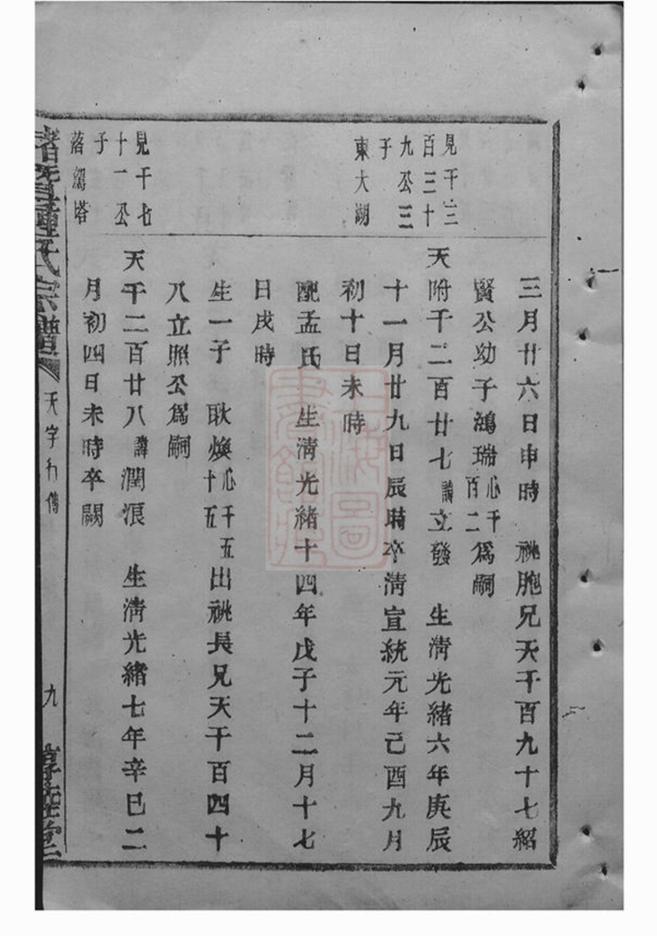 三月廿六日申時　祧胞兄天千百九十七紹
賢公幼子鴻瑞心千百二爲嗣
見千三
百三十
九公三
子
東大湖
天附千二百廿七諱立發　生淸光緒六年庚辰
十一月廿九日辰時卒淸宣統元年己酉九月
初十日未時
配孟氏　生淸光緒十四年戊子十二月十七
日戌時
生一子　耿煥心千五十五出祧長兄天千百四十
八立照公爲嗣
見千七
十一公
子
落糿塔
天千二百廿八諱潤浪　生淸光緒七年辛巳二
月初四日未時卒闕
氏宗譜
天字行傳
九
堂